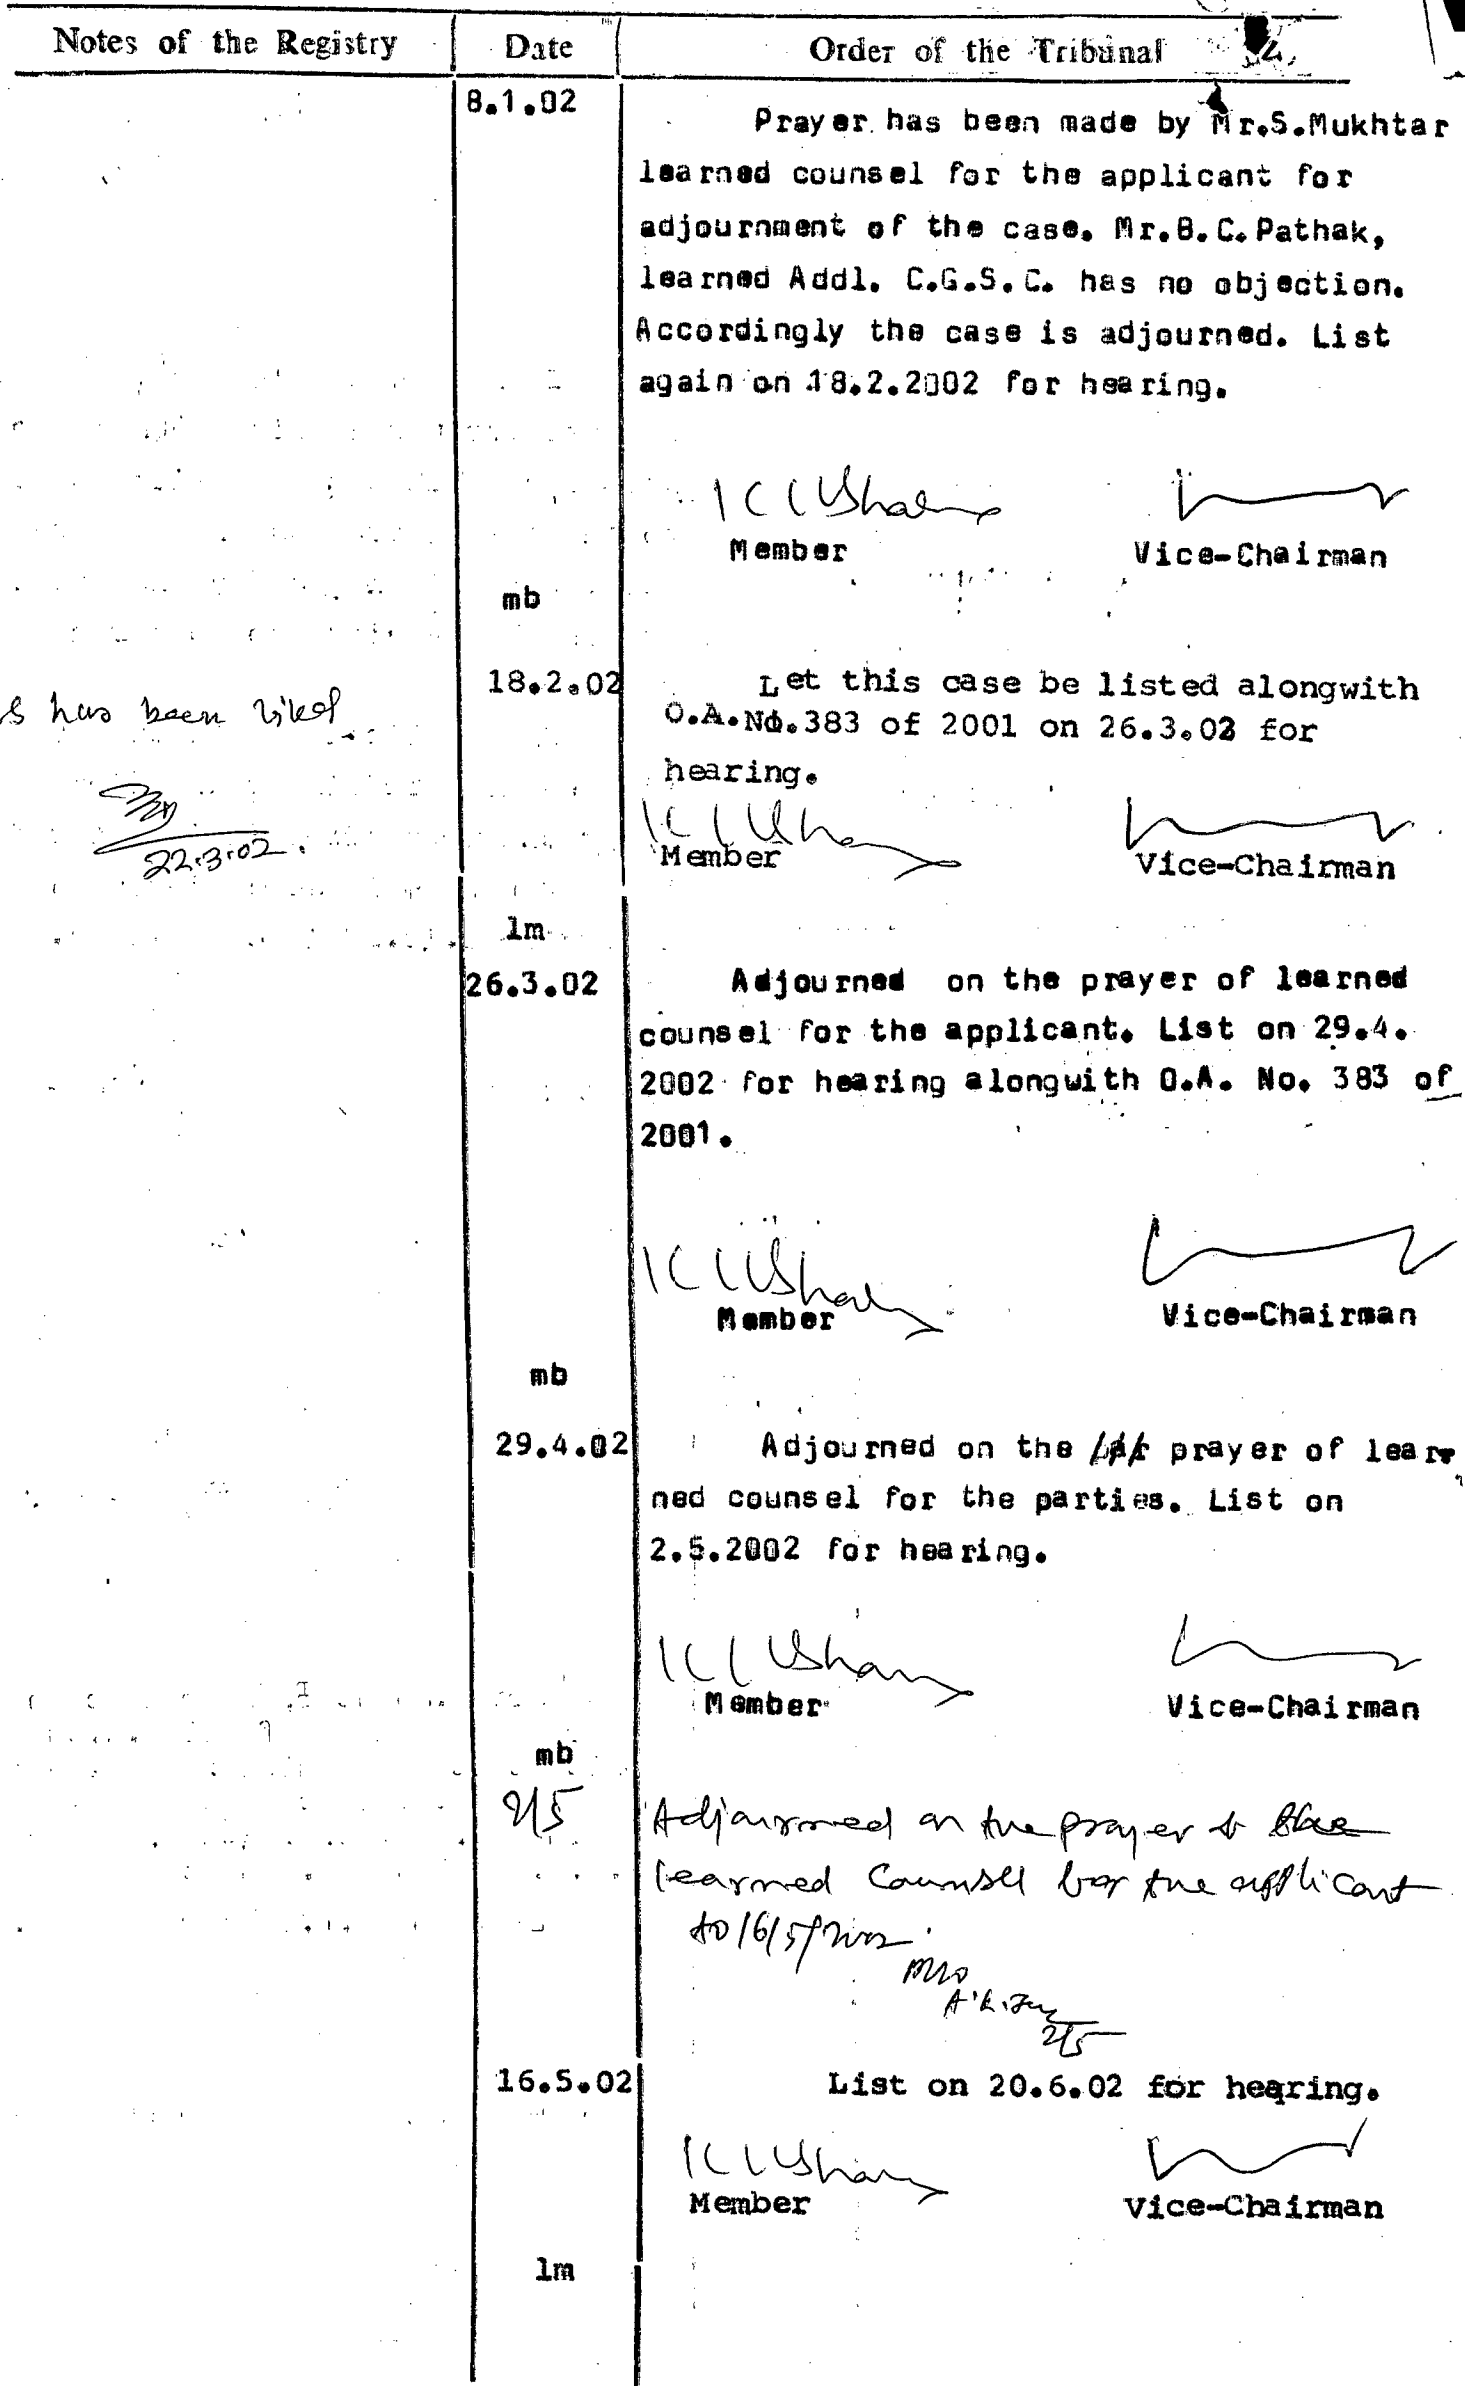 Notes of the Registry | Date | Order of the Tribunal
8.1.02
Prayer has been made by Mr.S.Mukhtar
learned counsel for the applicant for
adjournment of the case. Mr.B.C.Pathak,
learned Addl. C.G.S.C. has no objection.
Accordingly the case is adjourned. List
again on 18.2.2002 for hearing.
Member Vice-Chairman
mb
18.2.02 Let this case be listed alongwith
O.A.No.383 of 2001 on 26.3.02 for
hearing.
has been
22.3.02.
Member Vice-Chairman
lm
26.3.02 Adjourned on the prayer of learned
counsel for the applicant. List on 29.4.
2002 for hearing alongwith O.A. No. 383 of
2001.
Member Vice-Chairman
mb
29.4.02 Adjourned on the prayer of lear-
ned counsel for the parties. List on
2.5.2002 for hearing.
Member Vice-Chairman
mb
2/5 Adjourned on the prayer of
learned Counsel for the applicant
to 16/5/2002.
2/5
16.5.02 List on 20.6.02 for hearing.
Member Vice-Chairman
lm